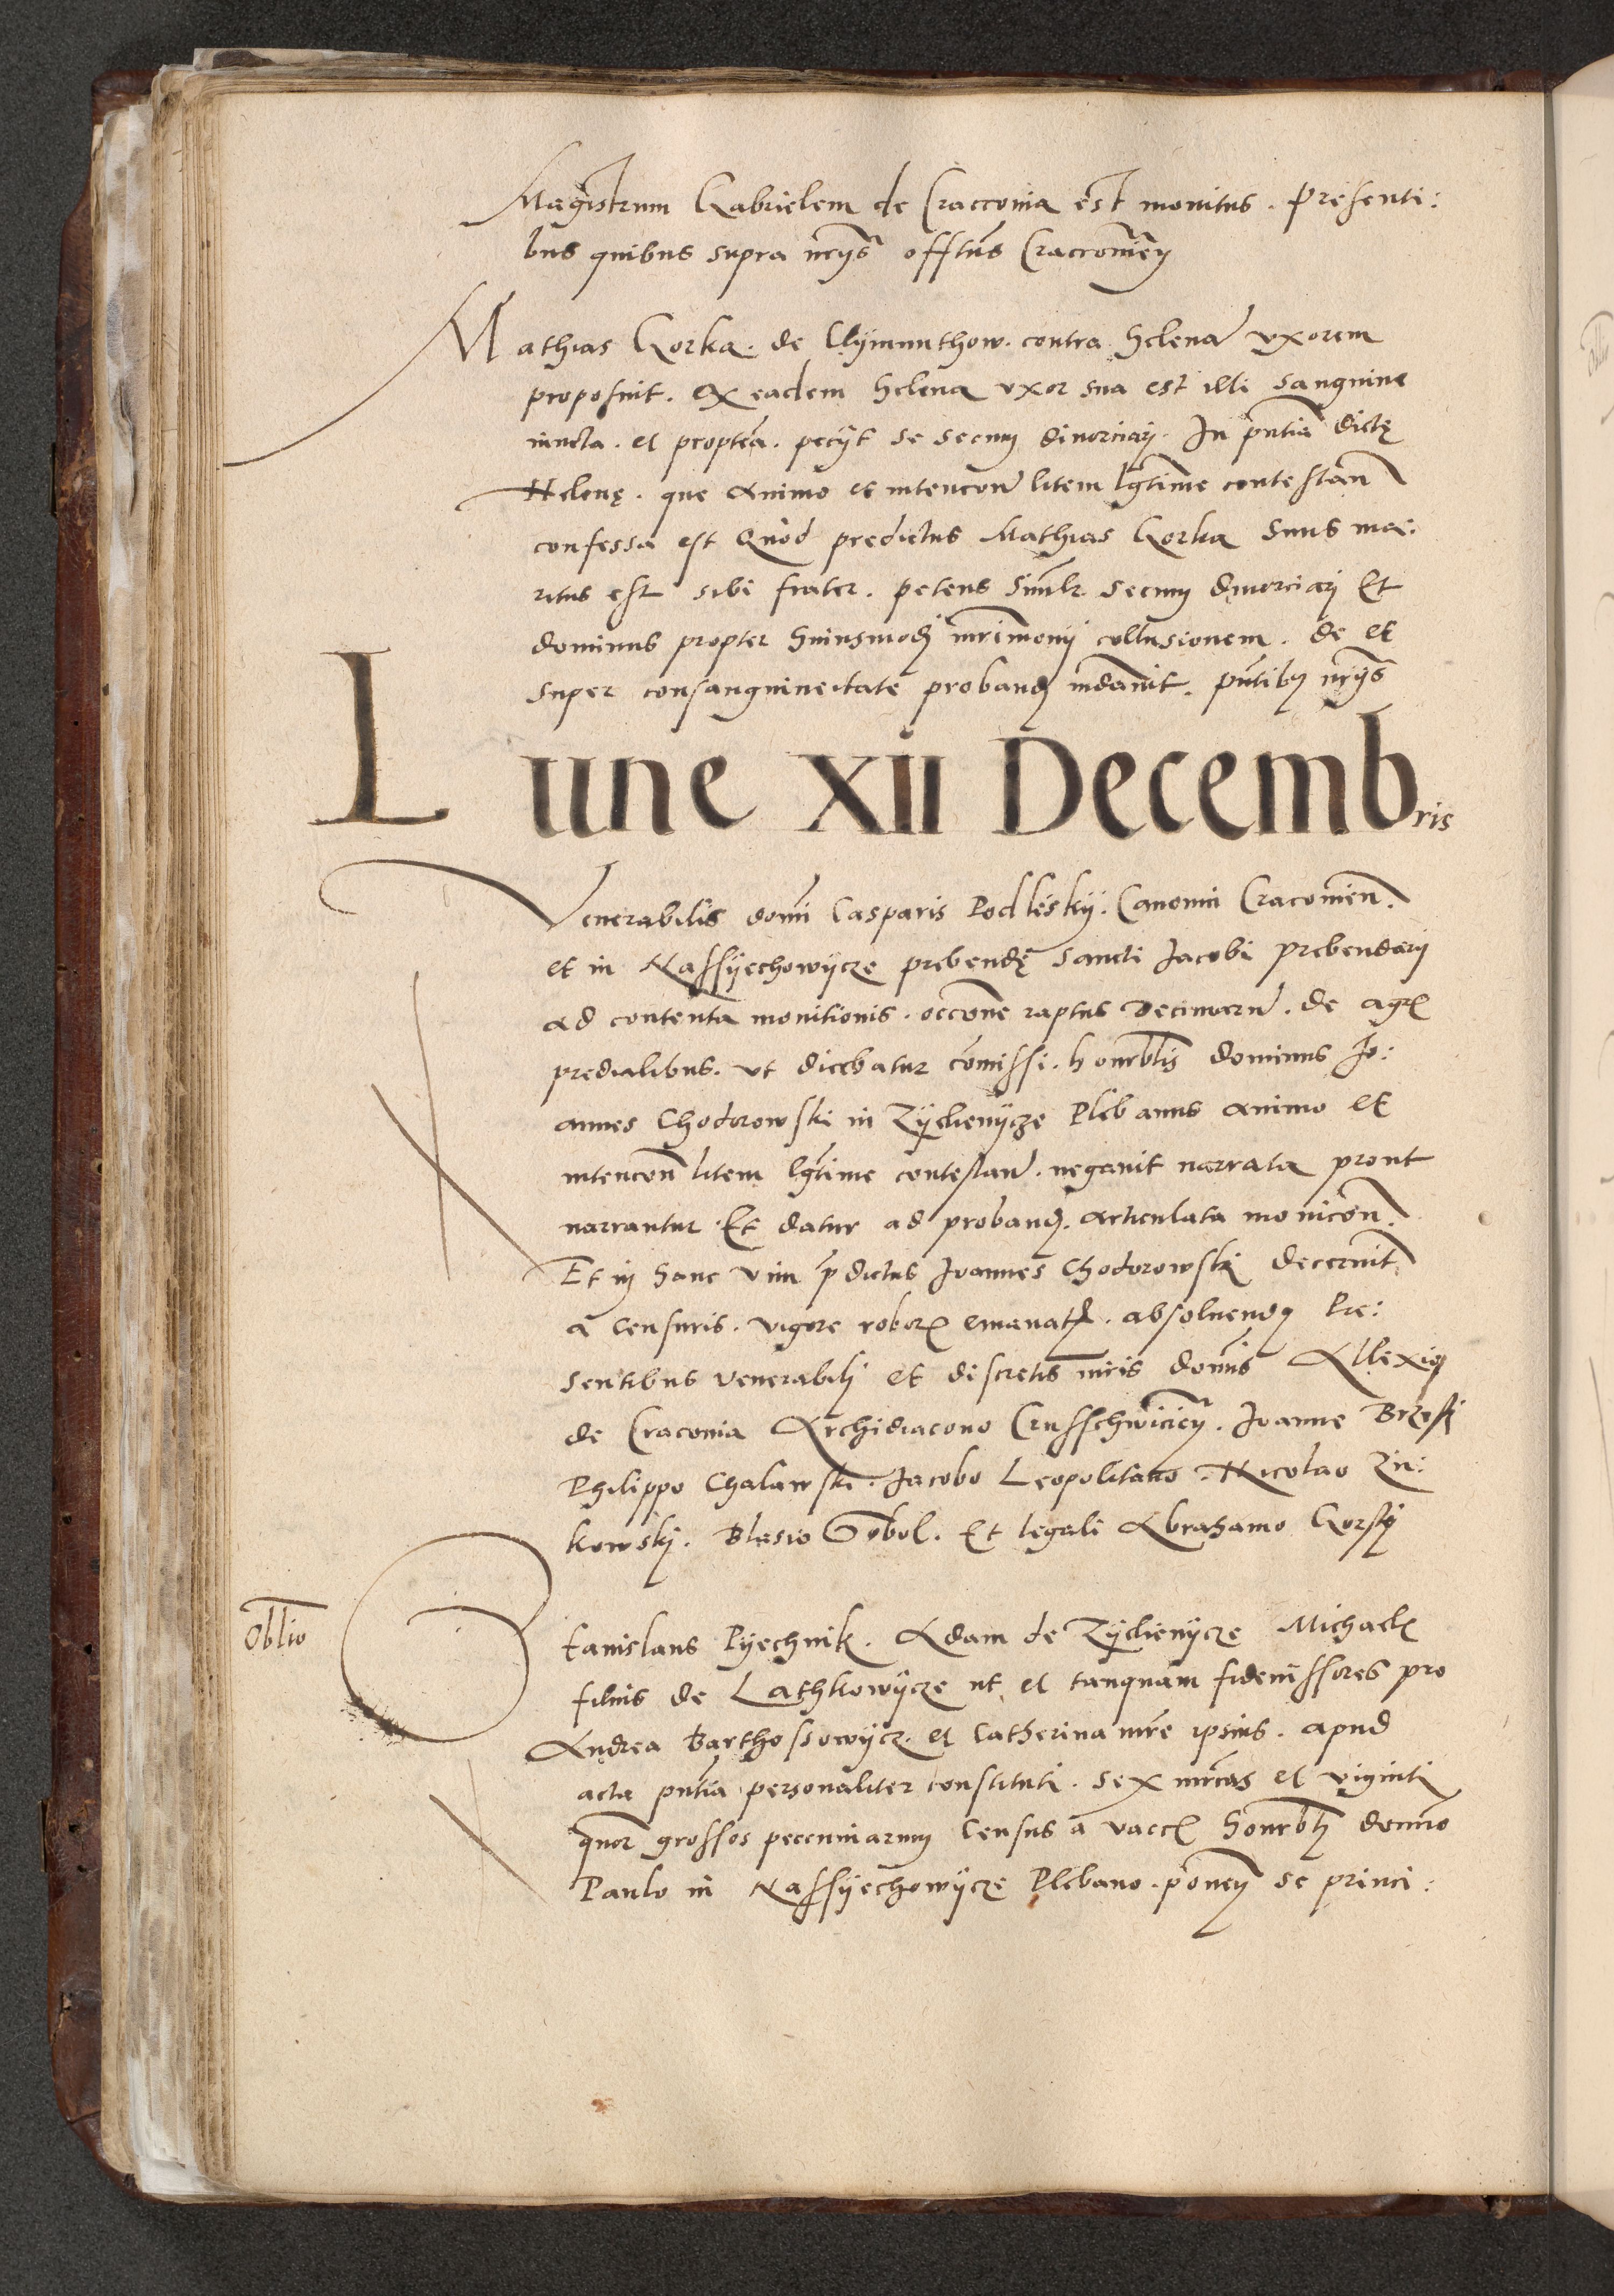 Magistrum Gabrielem de Cracconia est monitus. Presenti:
bus quibus supra nrijs offtus Cracconien
Mathias Gorka. de Clymunthow. contra Helenã uxorem
proposuit. Ex eadem Helena uxor sua est illi sanguine
iuncta. et proptea. pecijt se secum divorciarj. In pntia dictę
Helenę. que animo et intencone litem lgtime contestan
confessa est Quod predictus Mathias Gorka suus ma:
ritus est sibi frater. petens simlr secum divorciarj Et
dominus propter huiusmodj mrimonij collusionem. de et
super consanguineitate proband mdavit. pntibus nrijs
Lune XII Decembris
Venerabilis domi Casparis Podlesky. Canonici Cracovien.
et in Rassyechowycze prebendę sancti Jacobi prebendarij
ad contenta monitionis. occone raptus decimarum. de agr
predialibus. ut dicebatur comissi. honrblis dominus Jo:
annes Chodorowski in Zyelienycze Plebanus animo et
intencon litem lgtime contestan. negavit narrata prout
narrantur. Et datur ad proband. articulata monicon.
Et in hanc vim pdictus Joannes Chodorowski decernit
a censuris. vigore robor emanat. absolvend Pre:
sentibus venerabilj et discretis viris domis Allexio
de Cracovia Archidiacono Crusschwicien. Joanne Brzesi
Philippo Chalawski. Jacobo Leopolitano. Nicolao Zu:
kowskj. Blasio Gobol. Et legali Abrahamo Gorski
Oblio
Stanislaus Pyechnik. Adam de Zyelienycze Michael
filius de Lathkowycze ut et tanquam fideiussores pro
Andrea Barthossowycz. et Catherina mre ipsius. apud
acta pntia personaliter constituti. sex mrcas et viginti
quor grossos pecuniarum census a vacc honrbli domino
Paulo in Rassyechowycze Plebano. ponen se princi: